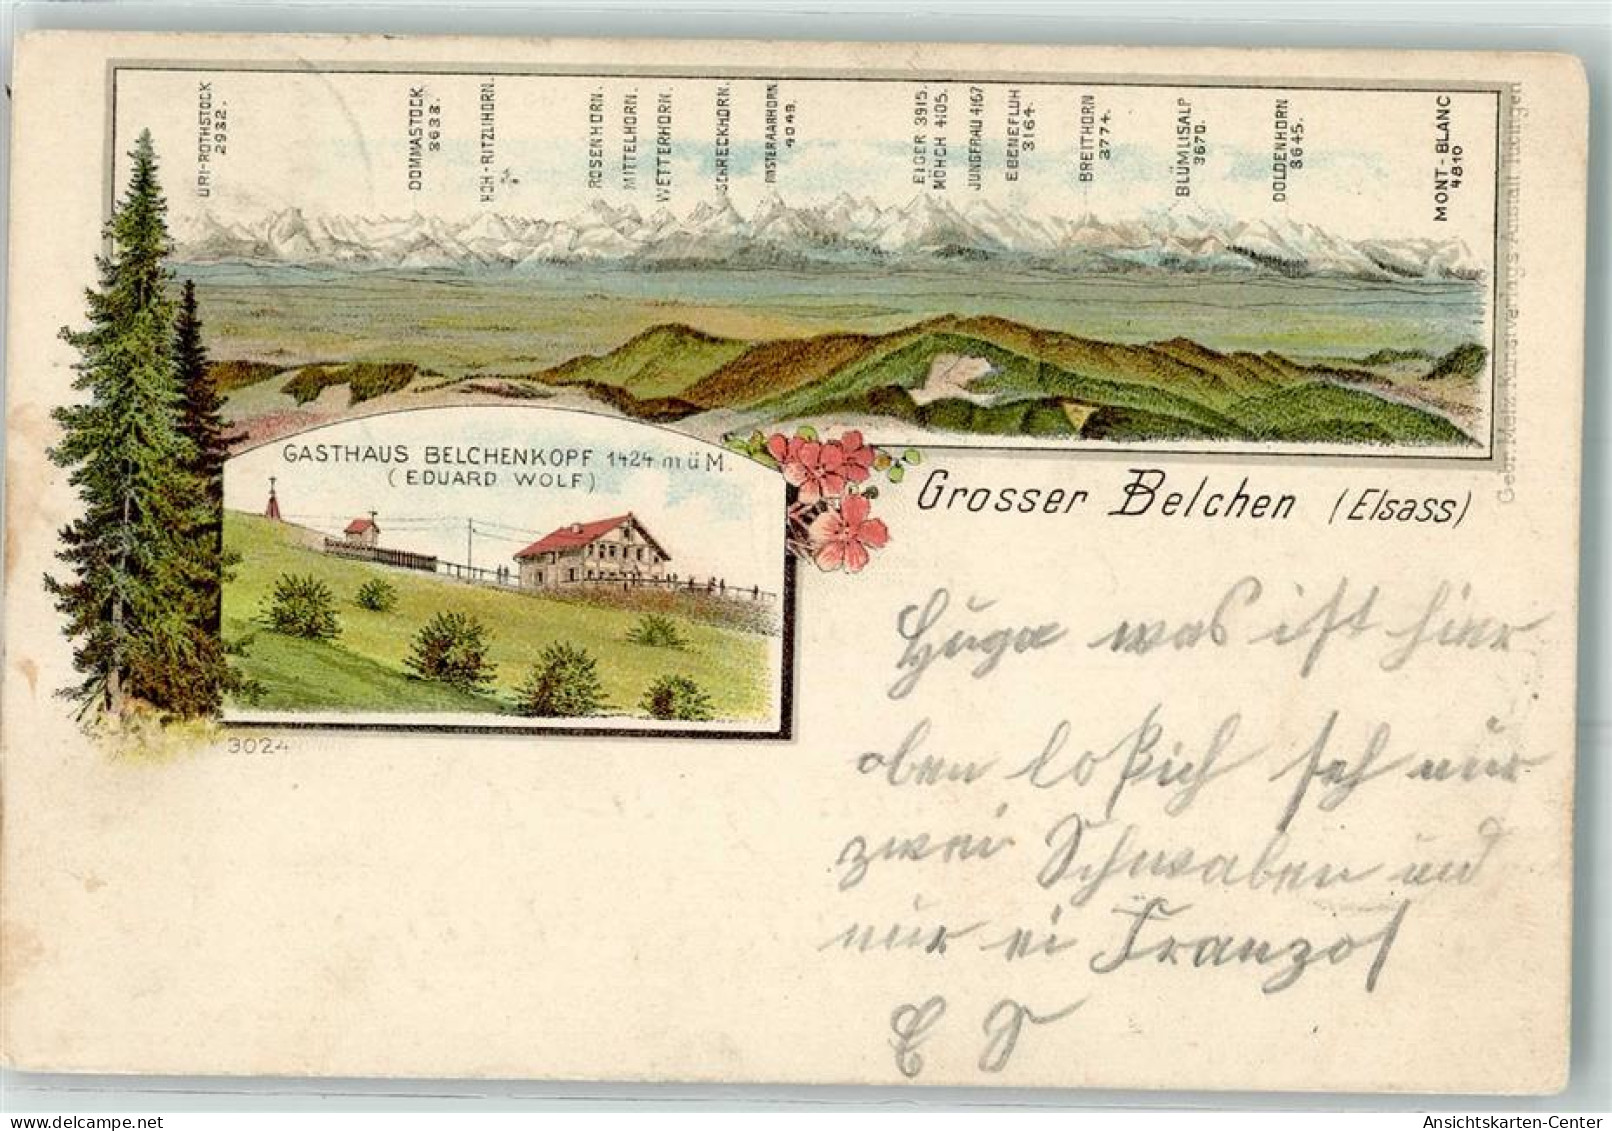 URI-ROTHSTOCK
2932.
DOMMASTOCK.
3633.
HOH-RITZLIHORN.
ROSENHORN.
MITTELHORN.
WETTERHORN.
SCHRECKHORN.
FINSTERAARHORN
4049.
EIGER 3915.
MÖNCH 4105.
JUNGFRAU 4167
EBENEFLUH
3164.
BREITHORN
3774.
BLÜMLISALP
3670.
DOLDENHORN
3645.
MONT-BLANC
4810
Georg Metz Kunstverlags Anstalt Tübingen
GASTHAUS BELCHENKOPF 1424 m ü M.
(EDUARD WOLF)
Grosser Belchen (Elsass)
3024
was ist hier
oben los ich seh nur
zwei Schwaben und
nur ei Franzos
E S
Ansichtskarten-Center